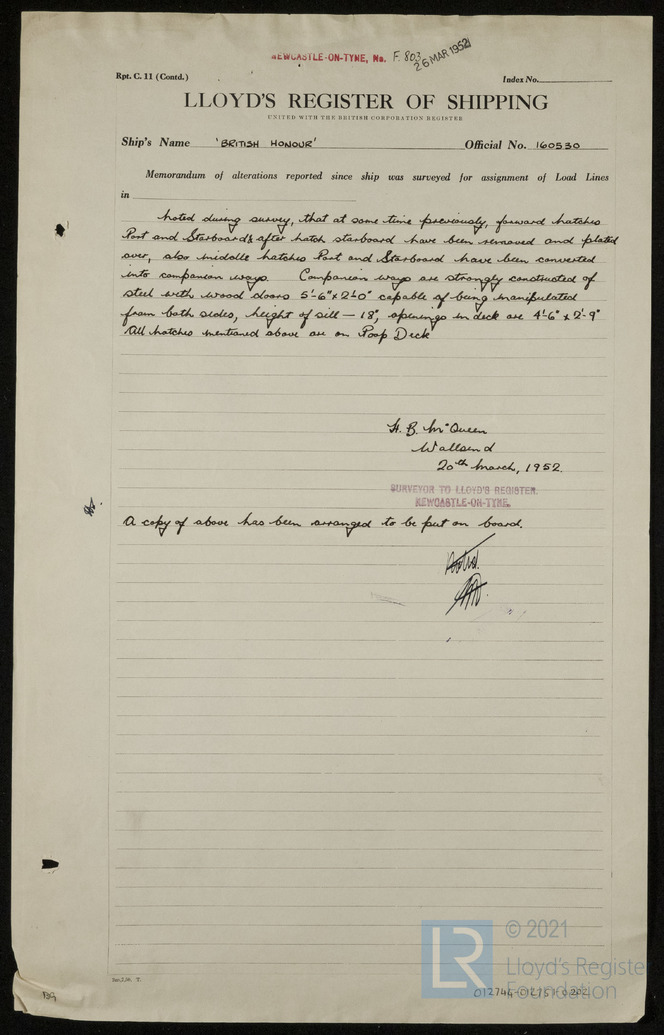 NEWCASTLE-ON-TYNE, No. F. 803
26 MAR 1952
Rpt. C. 11 (Contd.)
Index No.
LLOYD'S REGISTER OF SHIPPING
UNITED WITH THE BRITISH CORPORATION REGISTER
Ship's Name 'BRITISH HONOUR' Official No. 160530
Memorandum of alterations reported since ship was surveyed for assignment of Load Lines
in
Noted during survey, that at some time previously, forward hatches
Port and Starboard & after hatch starboard have been removed and plated
over, also middle hatches Port and Starboard have been converted
into companion ways. Companion ways are strongly constructed of
steel with wood doors 5'-6" x 2'-0" capable of being manipulated
from both sides, height of sill — 18", openings in deck are 4'-6" x 2'-9"
All hatches mentioned above are on Poop Deck
H. B. McQueen
Wallsend
20th March, 1952.
SURVEYOR TO LLOYD'S REGISTER.
NEWCASTLE-ON-TYNE.
A copy of above has been arranged to be put on board.
Noted.
LR
© 2021
Lloyd's Register
Foundation